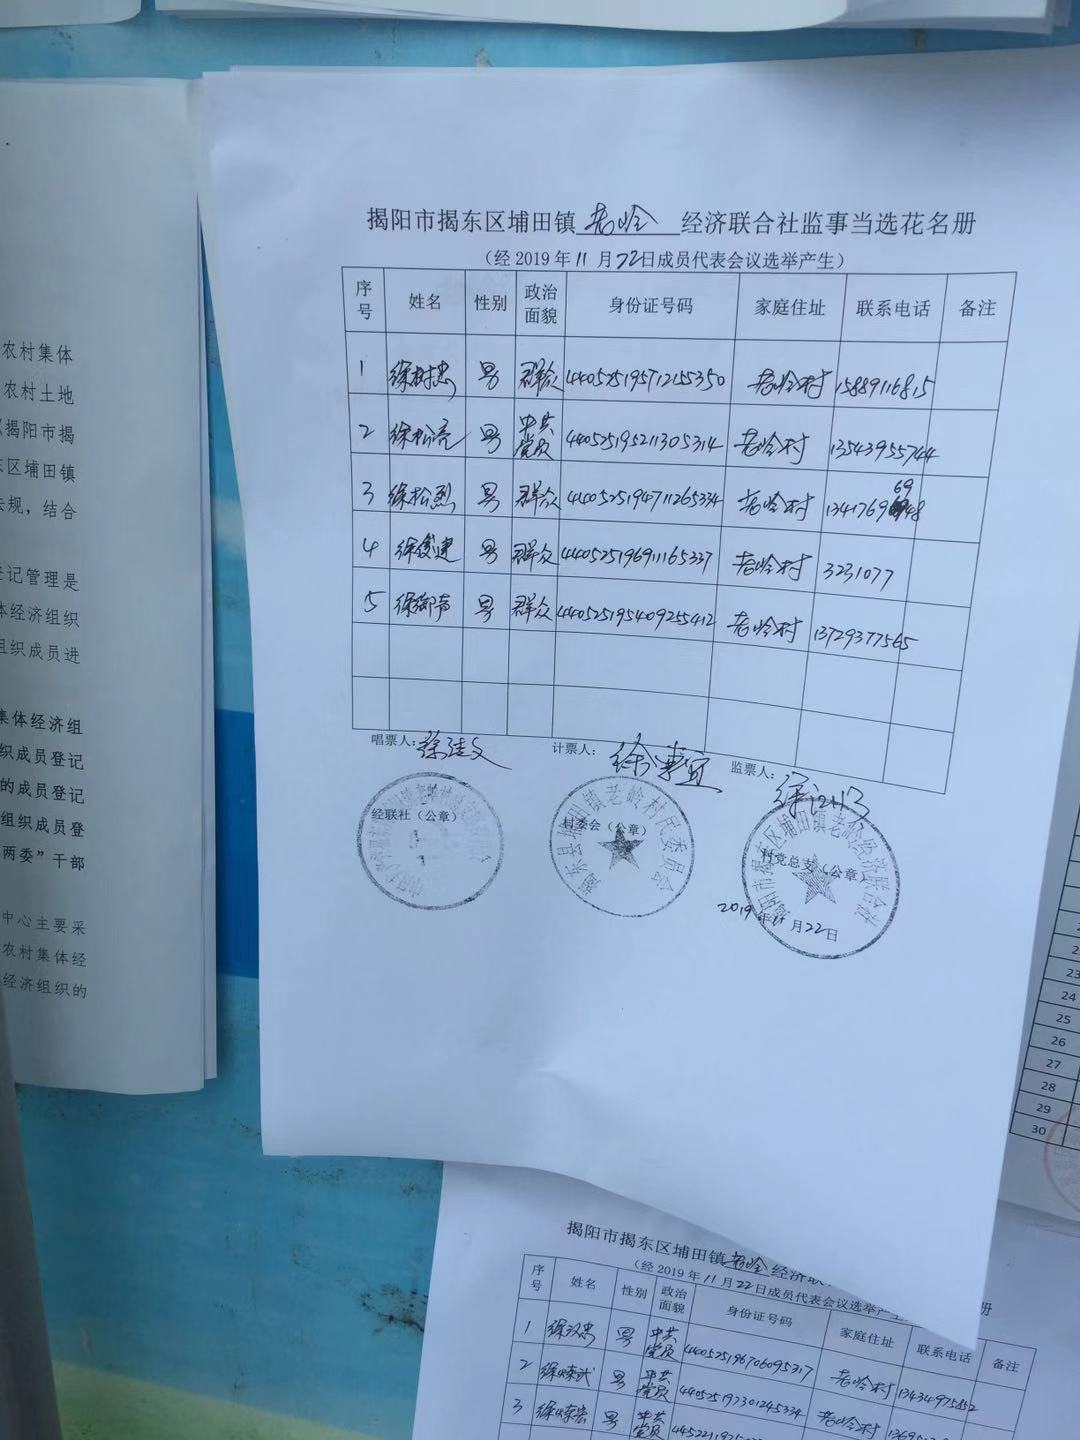 揭阳市揭东区埔田镇老岭经济联合社监事当选花名册
（经2019年11月22日成员代表会议选举产生）
序号 姓名 性别 政治面貌 身份证号码 家庭住址 联系电话 备注
1 徐树忠 男 群众 440525195712155350 老岭村 15889116815
2 徐松亮 男 中共党员 440525195211305314 老岭村 13543955744
3 徐松烈 男 群众 440525194711265334 老岭村
4 徐俊建 男 群众 440525196911165337 老岭村 3231077
5 男 群众 440525195409255412 老岭村 13729377565
唱票人： 计票人： 监票人：
经联社（公章） 村委会（公章） 村党总支（公章）
揭东县埔田镇老岭村民委员会
揭阳市揭东区埔田镇老岭经济联合社
2019年11月22日
农村集体
农村土地
揭阳市揭
区埔田镇
法规，结合
登记管理是
体经济组织
组织成员进
集体经济组
织成员登记
的成员登记
组织成员登
两委”干部
中心主要采
农村集体经
经济组织的
23
24
25
26
27
28
29
30
揭阳市揭东区埔田镇老岭经济联
册
（经2019年11月22日成员代表会议选举产生
序号 姓名 性别 政治面貌 身份证号码 家庭住址 联系电话 备注
1 徐汉忠 男 中共党员 440525196706095317 老岭村 13434975552
2 男 中共党员 440525197301245334 老岭村
3 男 中共党员 老岭村